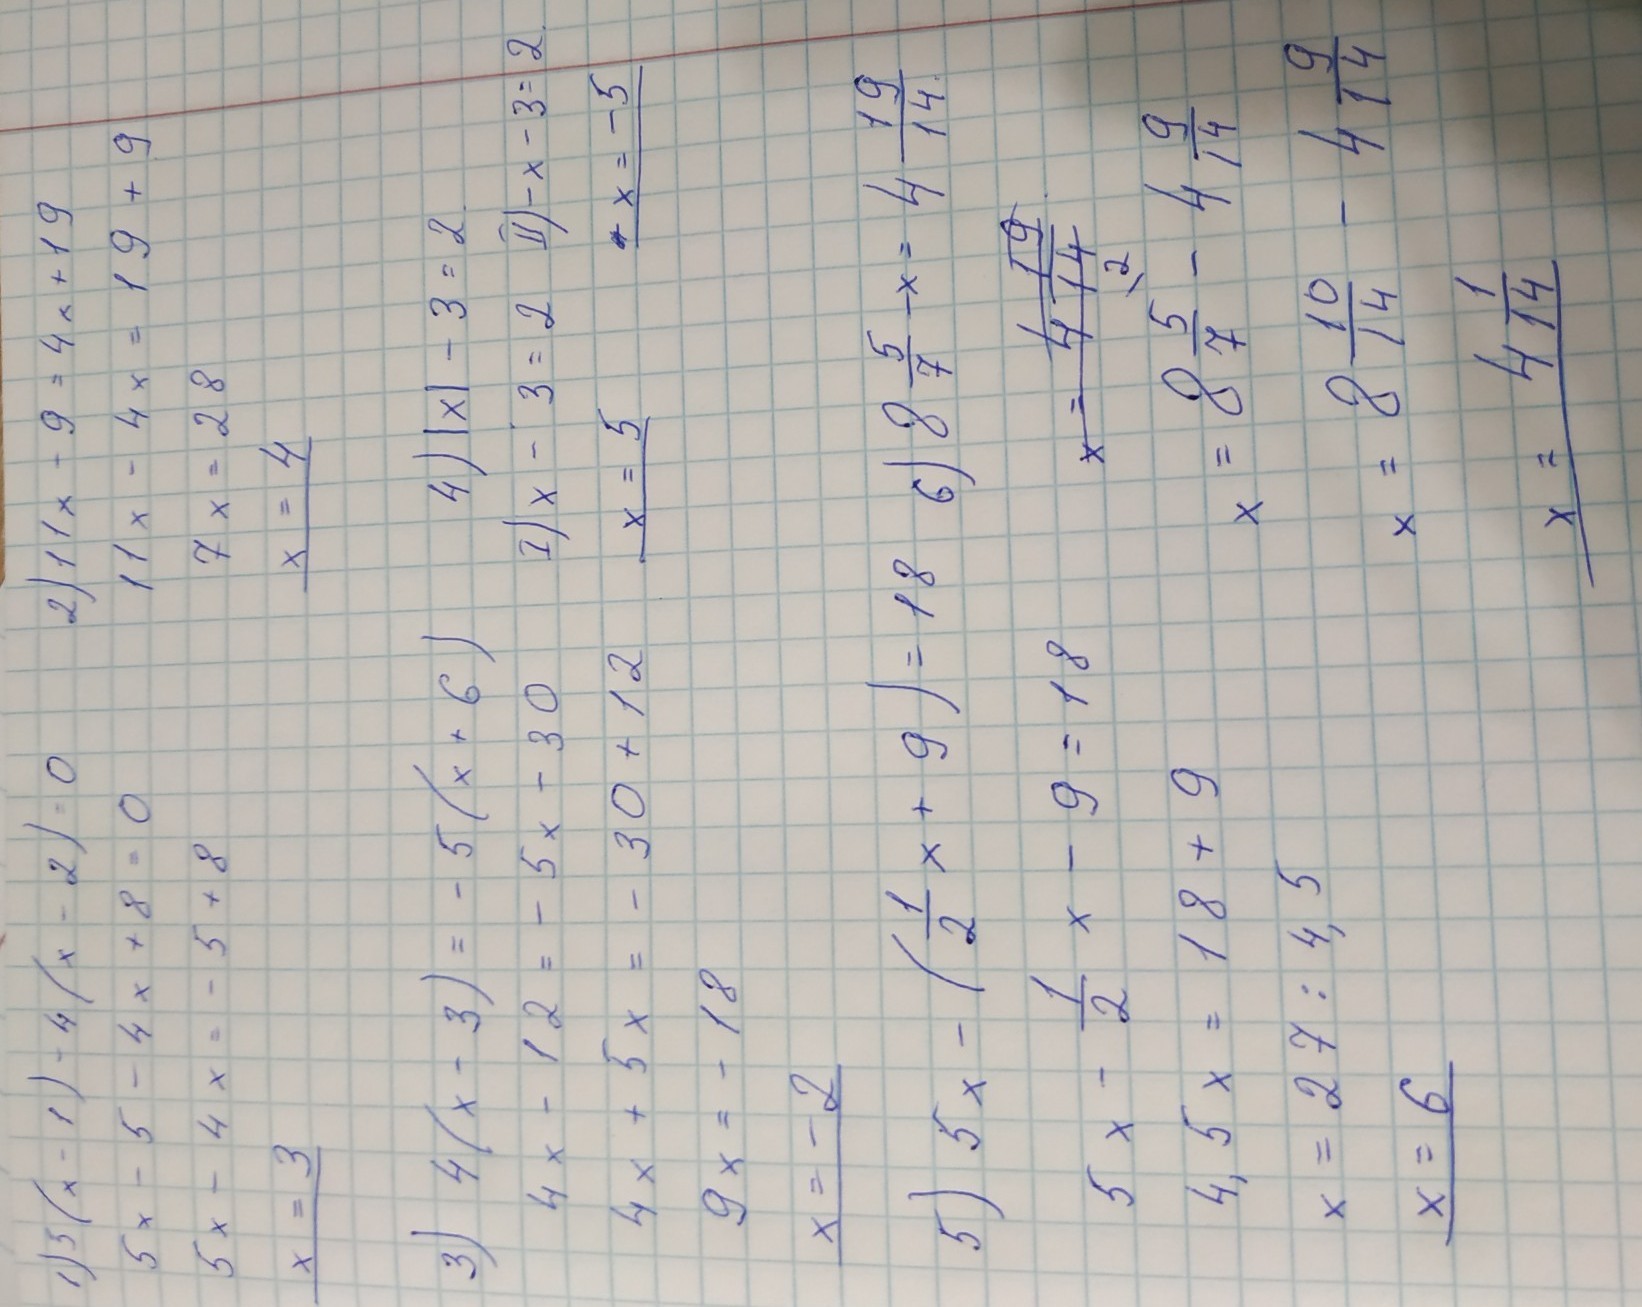 1) 5(x-1)-4(x-2)=0
5x-5-4x+8=0
5x-4x=-5+8
x=3
2) 11x-9=4x+19
11x-4x=19+9
7x=28
x=4
3) 4(x-3)=-5(x+6)
4x-12=-5x-30
4x+5x=-30+12
9x=-18
x=-2
4) |x|-3=2
I) x-3=2 II) -x-3=2
x=5 x=-5
5) 5x-(1/2 x+9)=18
5x-1/2 x-9=18
4,5x=18+9
x=27:4,5
x=6
6) 8 5/7-x=4 19/14
x=4 19/14
x=8 5/7 \2 -4 9/14
x=8 10/14-4 9/14
x=4 1/14